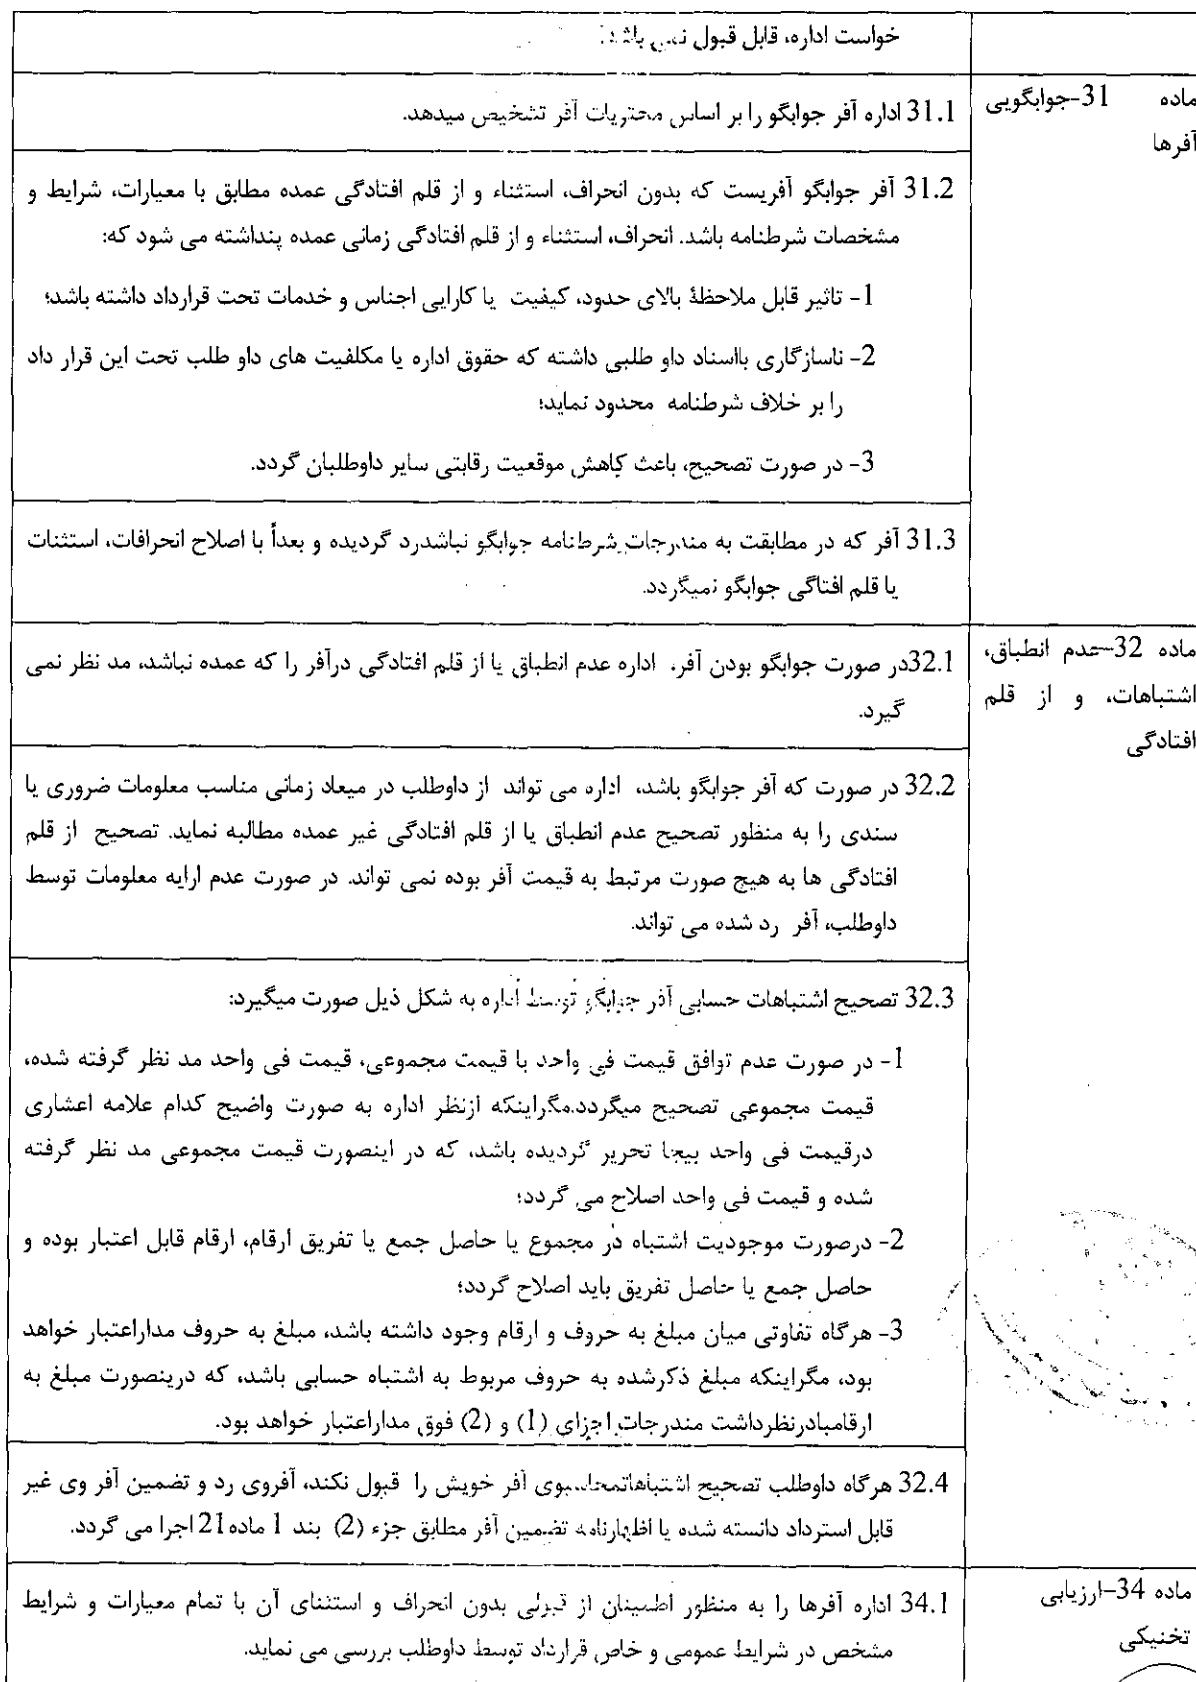 خواست اداره، قابل قبول نمی باشد.
ماده 31-جوابگویی
آفرها
31.1 اداره آفر جوابگو را بر اساس محتریات آفر تشخیص میدهد.
31.2 آفر جوابگو آفریست که بدون انحراف، استثناء و از قلم افتادگی عمده مطابق با معیارات، شرایط و
مشخصات شرطنامه باشد. انحراف، استثناء و از قلم افتادگی زمانی عمده پنداشته می شود که:
1- تاثیر قابل ملاحظۀ بالای حدود، کیفیت یا کارایی اجناس و خدمات تحت قرارداد داشته باشد؛
2- ناسازگاری بااسناد داو طلبی داشته که حقوق اداره یا مکلفیت های داو طلب تحت این قرار داد
را بر خلاف شرطنامه محدود نماید؛
3- در صورت تصحیح، باعث کاهش موقعیت رقابتی سایر داوطلبان گردد.
31.3 آفر که در مطابقت به مندرجات شرطنامه جوابگو نباشدرد گردیده و بعداً با اصلاح انحرافات، استثنات
یا قلم افتاگی جوابگو نمیگردد.
ماده 32-عدم انطباق،
اشتباهات، و از قلم
افتادگی
32.1در صورت جوابگو بودن آفر، اداره عدم انطباق یا از قلم افتادگی درآفر را که عمده نباشد، مد نظر نمی
گیرد.
32.2 در صورت که آفر جوابگو باشد، اداره می تواند از داوطلب در میعاد زمانی مناسب معلومات ضروری یا
سندی را به منظور تصحیح عدم انطباق یا از قلم افتادگی غیر عمده مطالبه نماید. تصحیح از قلم
افتادگی ها به هیچ صورت مرتبط به قیمت آفر بوده نمی تواند. در صورت عدم ارایه معلومات توسط
داوطلب، آفر رد شده می تواند.
32.3 تصحیح اشتباهات حسابی آفر جوابگو توسط اداره به شکل ذیل صورت میگیرد:
1- در صورت عدم توافق قیمت فی واحد با قیمت مجموعی، قیمت فی واحد مد نظر گرفته شده،
قیمت مجموعی تصحیح میگردد.مگراینکه ازنظر اداره به صورت واضیح کدام علامه اعشاری
درقیمت فی واحد بیجا تحریر گردیده باشد، که در اینصورت قیمت مجموعی مد نظر گرفته
شده و قیمت فی واحد اصلاح می گردد؛
2- درصورت موجودیت اشتباه در مجموع یا حاصل جمع یا تفریق ارقام، ارقام قابل اعتبار بوده و
حاصل جمع یا حاصل تفریق باید اصلاح گردد؛
3- هرگاه تفاوتی میان مبلغ به حروف و ارقام وجود داشته باشد، مبلغ به حروف مداراعتبار خواهد
بود، مگراینکه مبلغ ذکرشده به حروف مربوط به اشتباه حسابی باشد، که درینصورت مبلغ به
ارقامبادرنظرداشت مندرجات اجزای (1) و (2) فوق مداراعتبار خواهد بود.
32.4 هرگاه داوطلب تصحیح اشتباهاتمحاسبوی آفر خویش را قبول نکند، آفروی رد و تضمین آفر وی غیر
قابل استرداد دانسته شده یا اظهارنامه تضمین آفر مطابق جزء (2) بند 1 ماده21 اجرا می گردد.
ماده 34-ارزیابی
تخنیکی
34.1 اداره آفرها را به منظور اطمینان از قبولی بدون انحراف و استثنای آن با تمام معیارات و شرایط
مشخص در شرایط عمومی و خاص قرارداد توسط داوطلب بررسی می نماید.